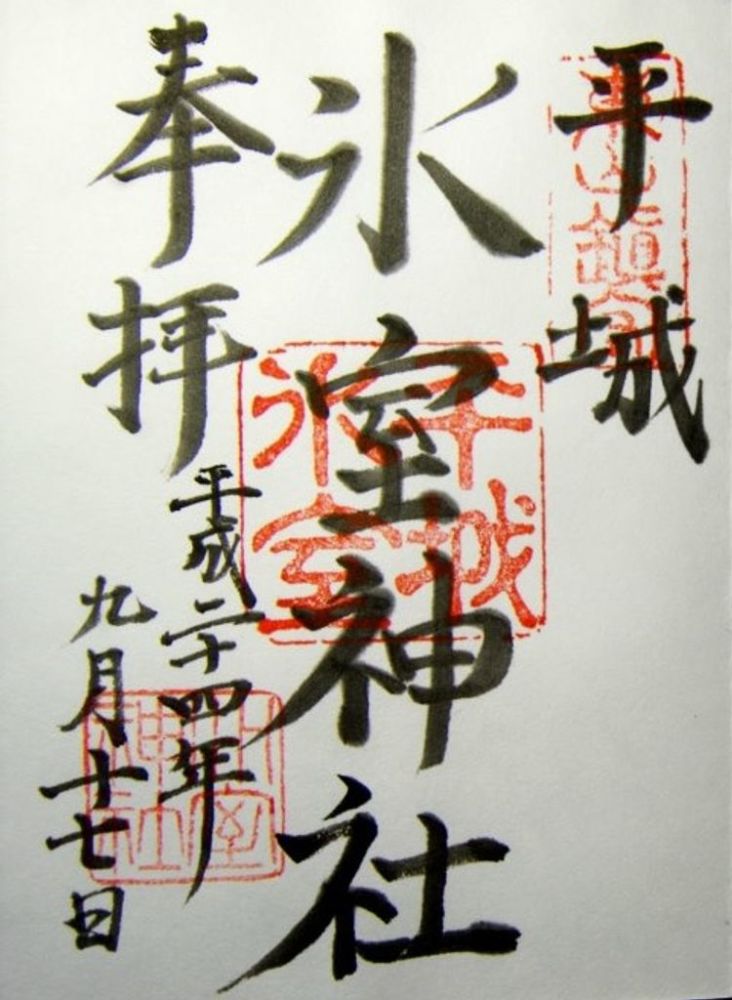 平城
氷室神社
奉拝
平成二十四年
九月十七日
平城
氷室